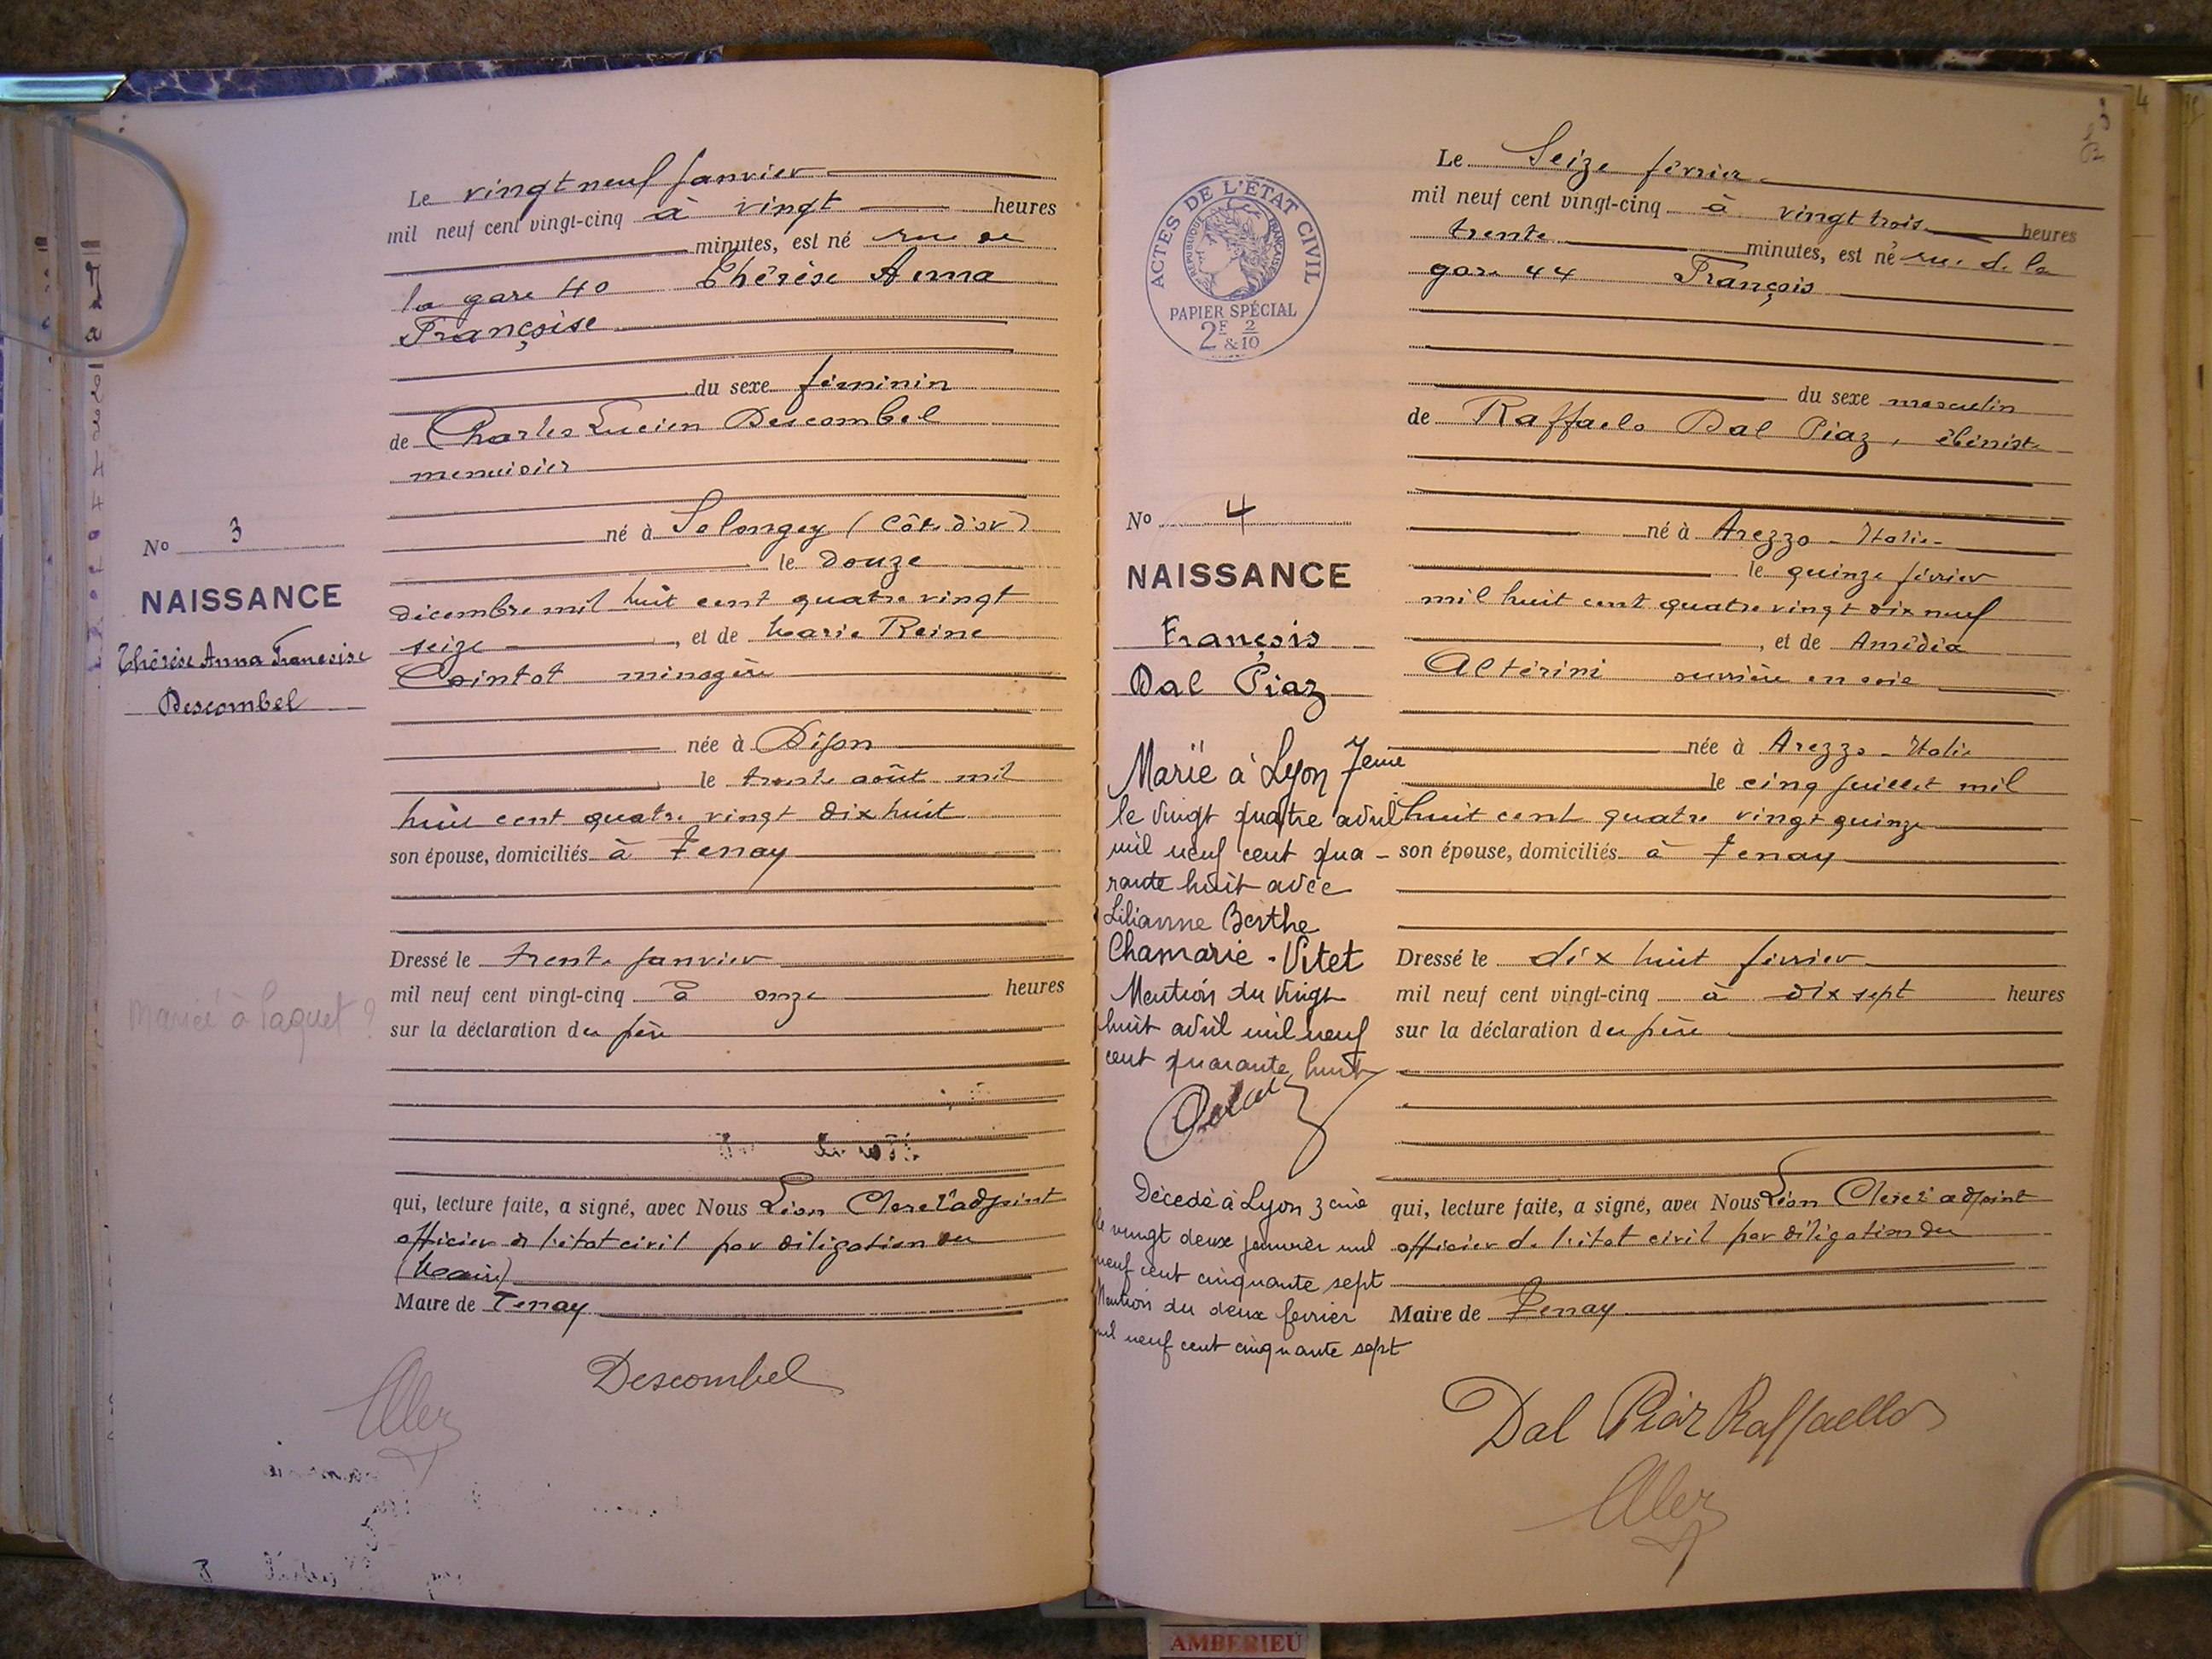 Le vingt neuf janvier
mil neuf cent vingt-cinq à vingt heures
minutes, est né rue de
la gare 40 Thérèse Anna
Françoise
du sexe féminin
de Charles Lucien Descombel
menuisier
né à Selongey (Côte d'or)
le douze
décembre mil huit cent quatre vingt
seize, et de Marie Reine
Cointot ménagère
née à Dijon
le trente août mil
huit cent quatre vingt dix huit
son épouse, domiciliés à Tenay
Dressé le trente janvier
mil neuf cent vingt-cinq à onze heures
sur la déclaration du père
qui, lecture faite, a signé, avec Nous Léon Clerc adjoint
officier de l'état civil par délégation du
(Maire)
Maire de Tenay
Descombel
No 3
NAISSANCE
Thérèse Anna Françoise
Descombel
Mariée à Paquet ?
ACTES DE L'ÉTAT CIVIL
RÉPUBLIQUE FRANÇAISE
PAPIER SPÉCIAL
2F & 2/10
No 4
NAISSANCE
François
Dal Piaz
Marié à Lyon 7eme
le vingt quatre avril
mil neuf cent qua-
rante huit avec
Lilianne Berthe
Chamarie-Vitet
Mention du vingt
huit avril mil neuf
cent quarante huit
Décédé à Lyon 3eme
le vingt deux janvier mil
neuf cent cinquante sept
Mention du deux fevrier
mil neuf cent cinquante sept
Le Seize février
mil neuf cent vingt-cinq à vingt trois heures
trente minutes, est né rue de la
gare 44 François
du sexe masculin
de Raffaelo Dal Piaz, ébéniste
né à Arezzo - Italie -
le quinze février
mil huit cent quatre vingt dix neuf
, et de Amédéa
Altérini ouvrière en soie
née à Arezzo - Italie
le cinq juillet mil
huit cent quatre vingt quinze
son épouse, domiciliés à Tenay
Dressé le dix huit février
mil neuf cent vingt-cinq à dix sept heures
sur la déclaration du père
qui, lecture faite, a signé, avec Nous Léon Clerc adjoint
officier de l'état civil par délégation du
Maire de Tenay
Dal Piaz Raffaello
AMBERIEU